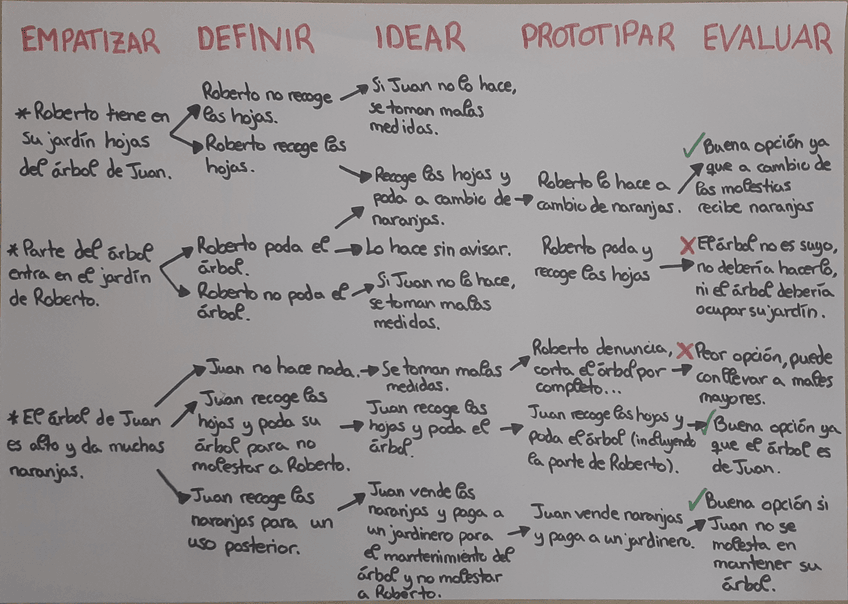 EMPATIZAR
DEFINIR
IDEAR
PROTOTIPAR
EVALUAR
*Roberto tiene en
su jardín hojas
del árbol de Juan.
Roberto no recoge
las hojas.
Roberto recoge las
hojas.
Si Juan no lo hace,
se toman malas
medidas.
Recoge las hojas y
poda a cambio de
naranjas.
Roberto lo hace a
cambio de naranjas.
Buena opción ya
que a cambio de
las molestias
recibe naranjas
*Parte del árbol
entra en el jardín
de Roberto.
Roberto poda el
árbol.
Roberto no poda el
árbol.
Lo hace sin avisar.
Si Juan no lo hace,
se toman malas
medidas.
Roberto poda y
recoge las hojas
El árbol no es suyo,
no debería hacerlo,
ni el árbol debería
ocupar su jardín.
*El árbol de Juan
es alto y da muchas
naranjas.
Juan no hace nada.
Juan recoge las
hojas y poda su
árbol para no
molestar a Roberto.
Juan recoge las
naranjas para un
uso posterior.
Se toman malas
medidas.
Juan recoge las
hojas y poda el
árbol.
Juan vende las
naranjas y paga a
un jardinero para
el mantenimiento del
árbol y no molestar
a Roberto.
Roberto denuncia,
corta el árbol por
completo...
Juan recoge las hojas y
poda el árbol (incluyendo
la parte de Roberto).
Juan vende naranjas
y paga a un jardinero.
Peor opción, puede
conllevar a males
mayores.
Buena opción ya
que el árbol es
de Juan.
Buena opción si
Juan no se
molesta en
mantener su
árbol.